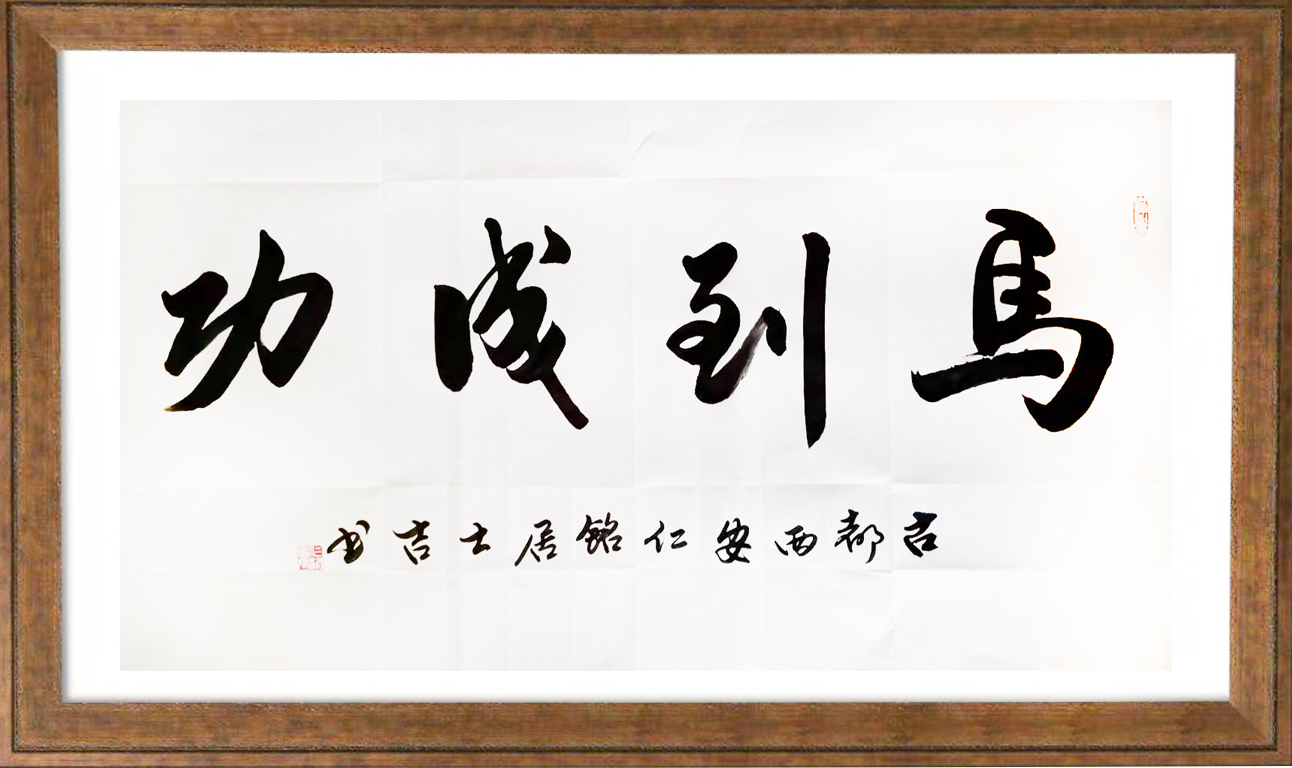 馬到成功
古都西安仁銘居士吉書